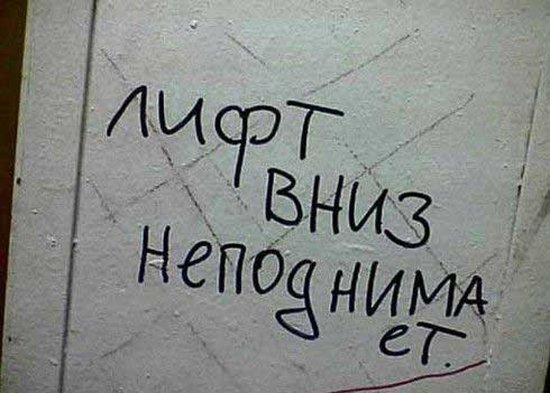 лифт
вниз
неподнима
ет.